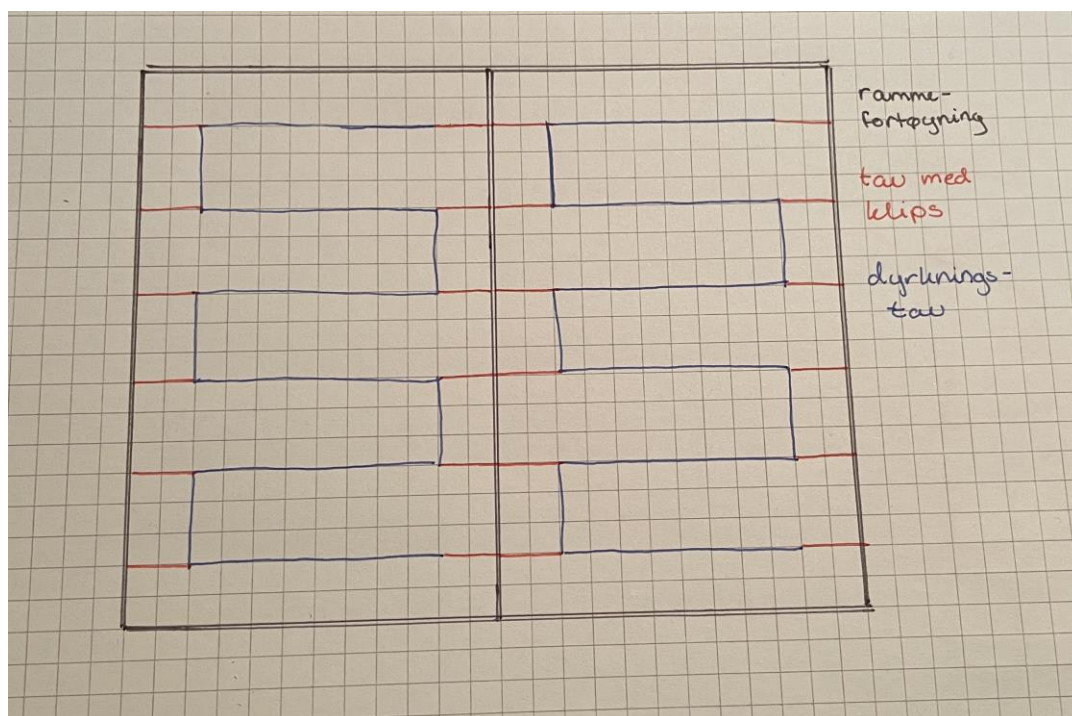 ramme-
fortøyning
tau med
klips
dyrknings-
tau